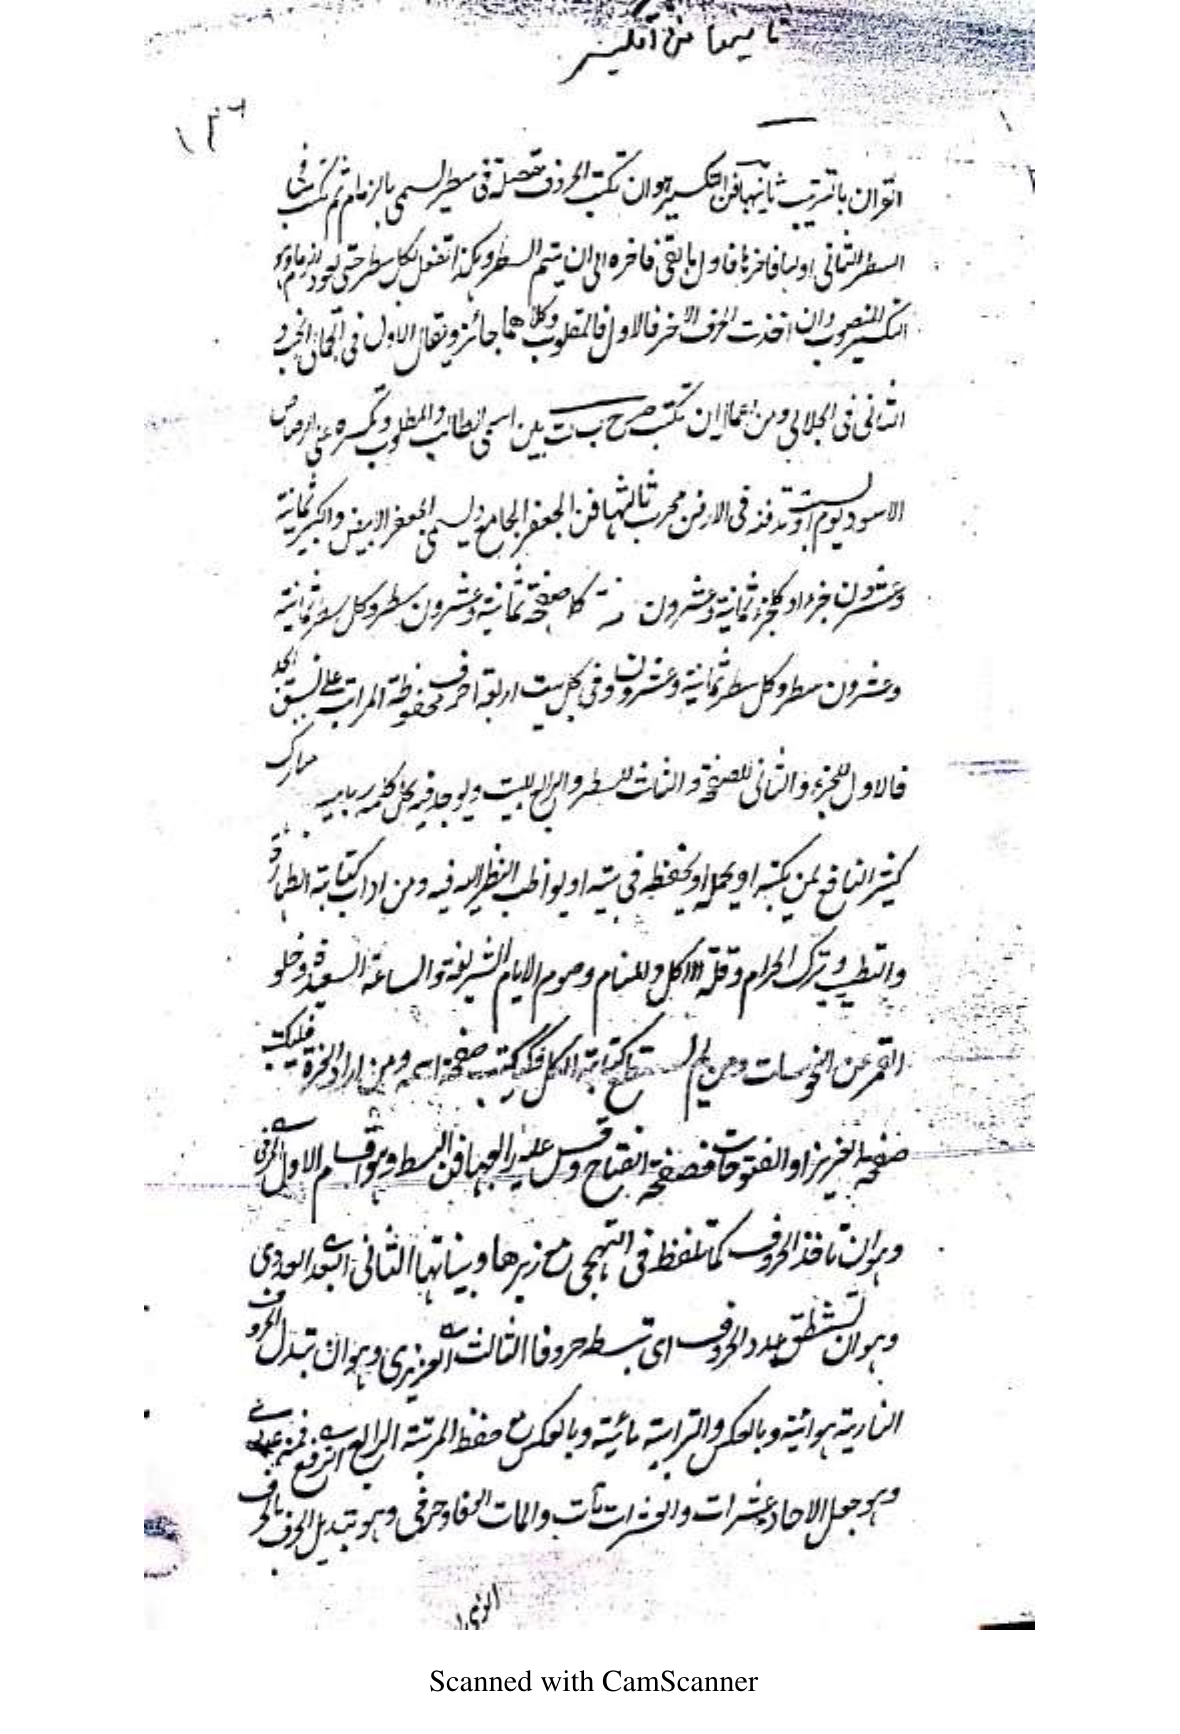 ثانيها فن التكسير
١٣٦
القران بالترتيب ثانيها فن التكسير هو ان تكتب الحروف مقصلة فى سطر لسمى بالزمام ثم تكتب فى
السطر الثانى اولها فاخرها فاول ما بقى فاخره الى ان يتم السطر وهكذا تفعل بكل سطر حتى يعود الزمام
التكسير المنصوب وان اخذت الحرف الاخر فالاول فالمقلوب وكلاهما جائز ويقال الاول فى الجمالى
الثانى فى الجلالى ومن اعمال ان تكتب بين اسمى الطالب والمطلوب وتكسره على الرصاص
الاسود يوم السبت وتدفنه فى الارض مجرب ثالثها فن الجعفر الجامع ويسمى الجعفر الابيض والكبير ثمانية
وعشرون جزء او كل جزء ثمانية وعشرون كل صفحة ثمانية وعشرون سطر وكل سطر ثمانية
وعشرون سطر وكل سطر ثمانية وعشرون وفى كل بيت اربعة احرف محفوظة المراتب على نسق
فالاول للجزء والثانى للصفحة والثالث للسطر والرابع للبيت ويوجد فيه كل كلمه رباعية مبارك
كثير النافع لمن يكتبه او يحمله او يحفظه فى بيته او يواظب النظر اليه فيه ومن اداب كتابته الطهارة
والتطيب وترك الحرام وقلة الاكل والمنام وصوم الايام الشريفة والساعة السعيدة وخلو
القمر عن النحوسات ومن لم يستطع كتابة الكل صفحة اسمه ومن اراد العزة فليكتب
صفحة العزيز او الفتوحات فصفحة الفتاح وقس عليه رابعها فن البسط وهو اقسام الاول الحرفى
وهو ان تاخذ الحروف كما تلفظ فى التهجى مع زبرها وبيناتها الثانى البسط العددى
وهو ان تستنطق عدد الحروف اى تبسطه حروفا الثالث العزيزى وهو ان تبدل الحروف
النارية هوائية وبالعكس والترابية مائية وبالعكس مع حفظ المرتبة الرابع الترفع فمنه عددى
وهو جعل الاحاد عشرات والعشرات مآت والمات الفا وحرفى وهو تبديل الحرف بالحرف
الذى
Scanned with CamScanner